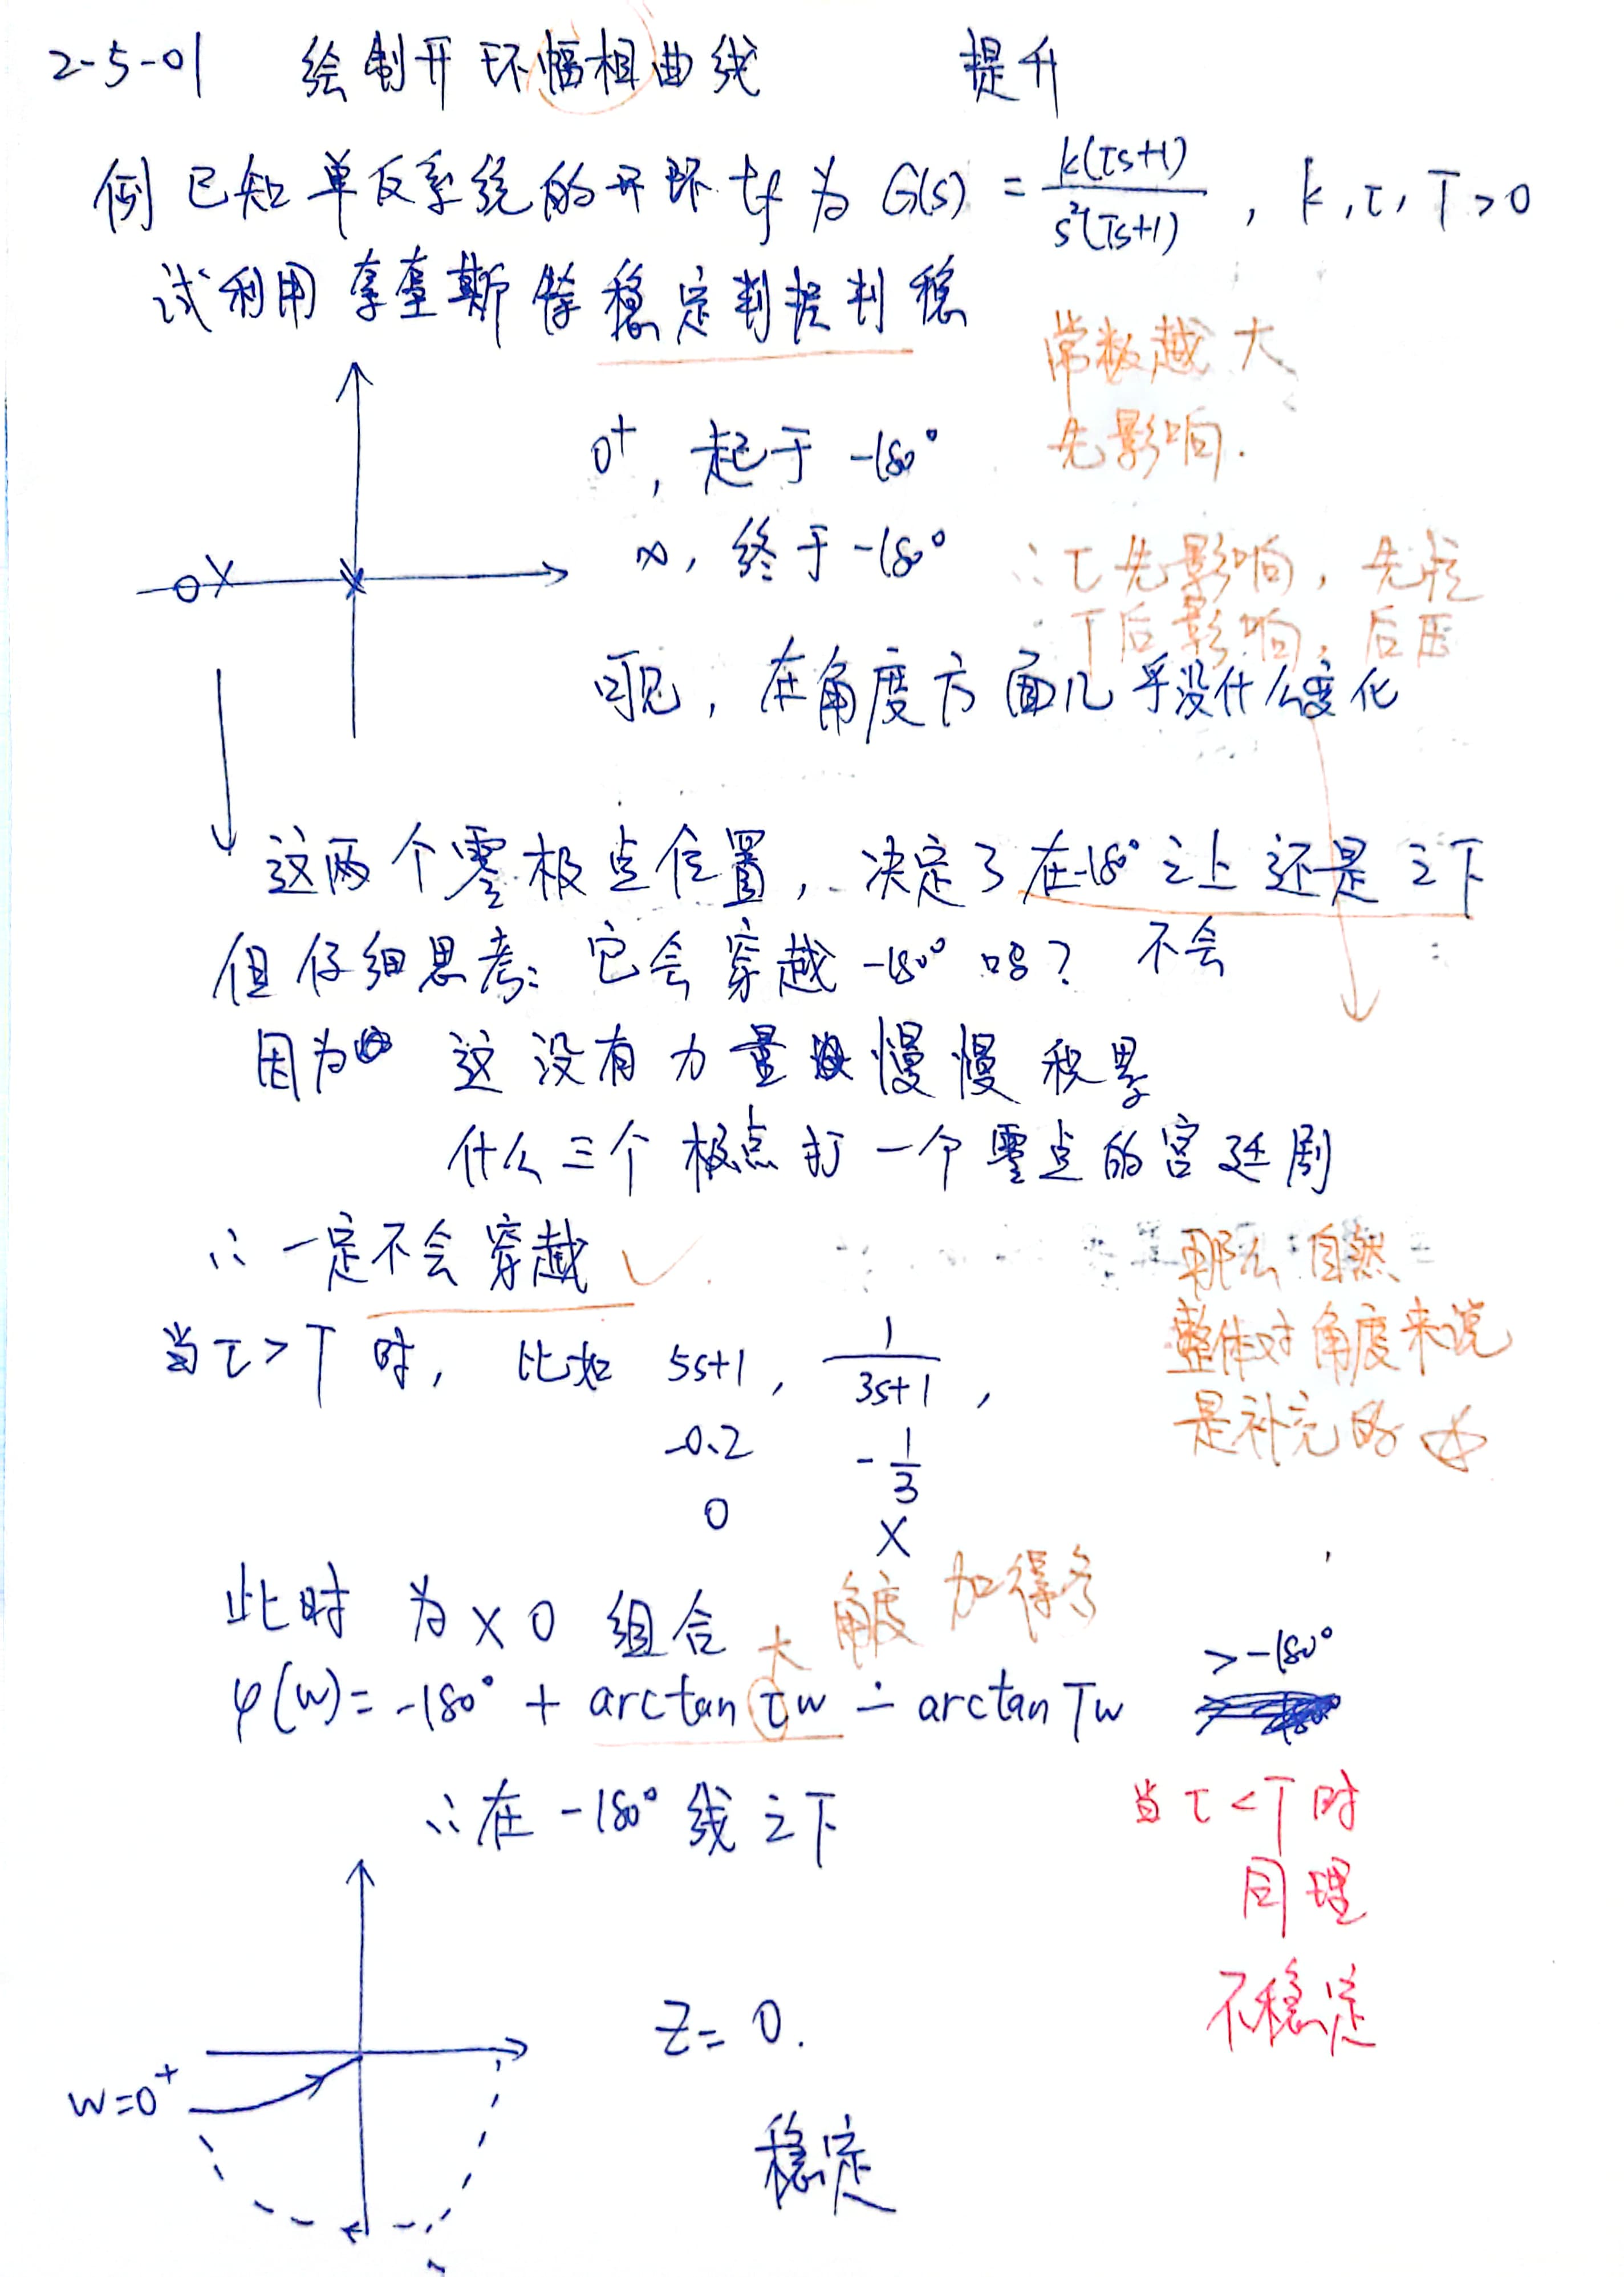 2-5-01 绘制开环幅相曲线 提升
例 已知单反系统的开环tf为 G(s) = k(τs+1) / s²(Ts+1) , k, τ, T>0
试利用奈奎斯特稳定判据判稳
常数越大
先影响.
0⁺, 起于 -180°
∞, 终于 -180°
∴τ先影响, 先拉
T后影响, 后压
可见, 在角度方面几乎没什么变化
这两个零极点位置, 决定了在-180°之上还是之下
但仔细思考: 它会穿越 -180° 吗? 不会
因为 这没有力量 慢慢积累
什么三个极点打一个零点的宫廷剧
∴一定不会穿越
那么自然
整体对角度来说
是补充的
当τ>T时, 比如 5s+1, 1/(3s+1),
-0.2 -1/3
0 X
此时 为 X 0 组合
大 角度 加得多
φ(w)= -180° + arctan τw - arctan Tw >-180°
∴在 -180° 线之下
当τ<T时
同理
不稳定
Z= 0.
w=0⁺
稳定